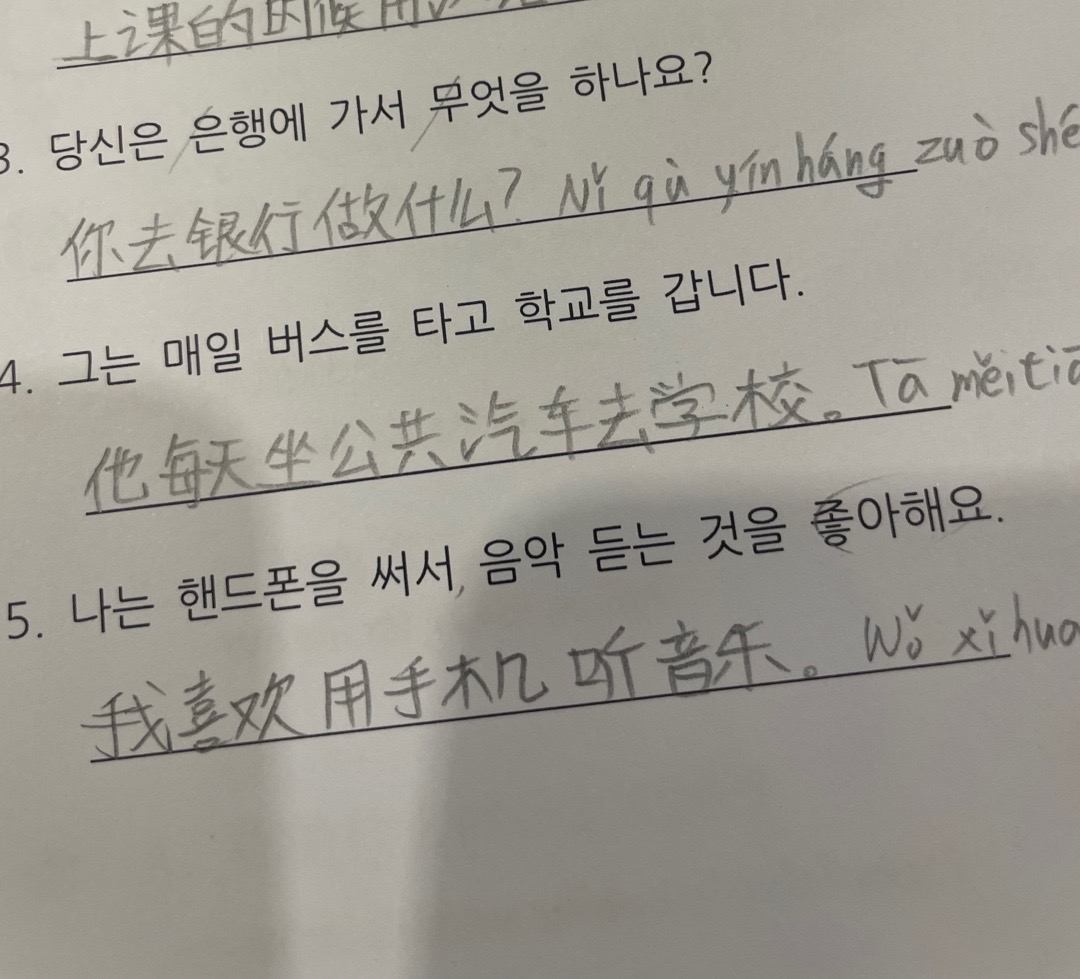 上课的时候用
3. 당신은 은행에 가서 무엇을 하나요?
你去银行做什么? Nǐ qù yínháng zuò shé
4. 그는 매일 버스를 타고 학교를 갑니다.
他每天坐公共汽车去学校。Tā měitiā
5. 나는 핸드폰을 써서, 음악 듣는 것을 좋아해요.
我喜欢用手机听音乐。Wǒ xǐhua